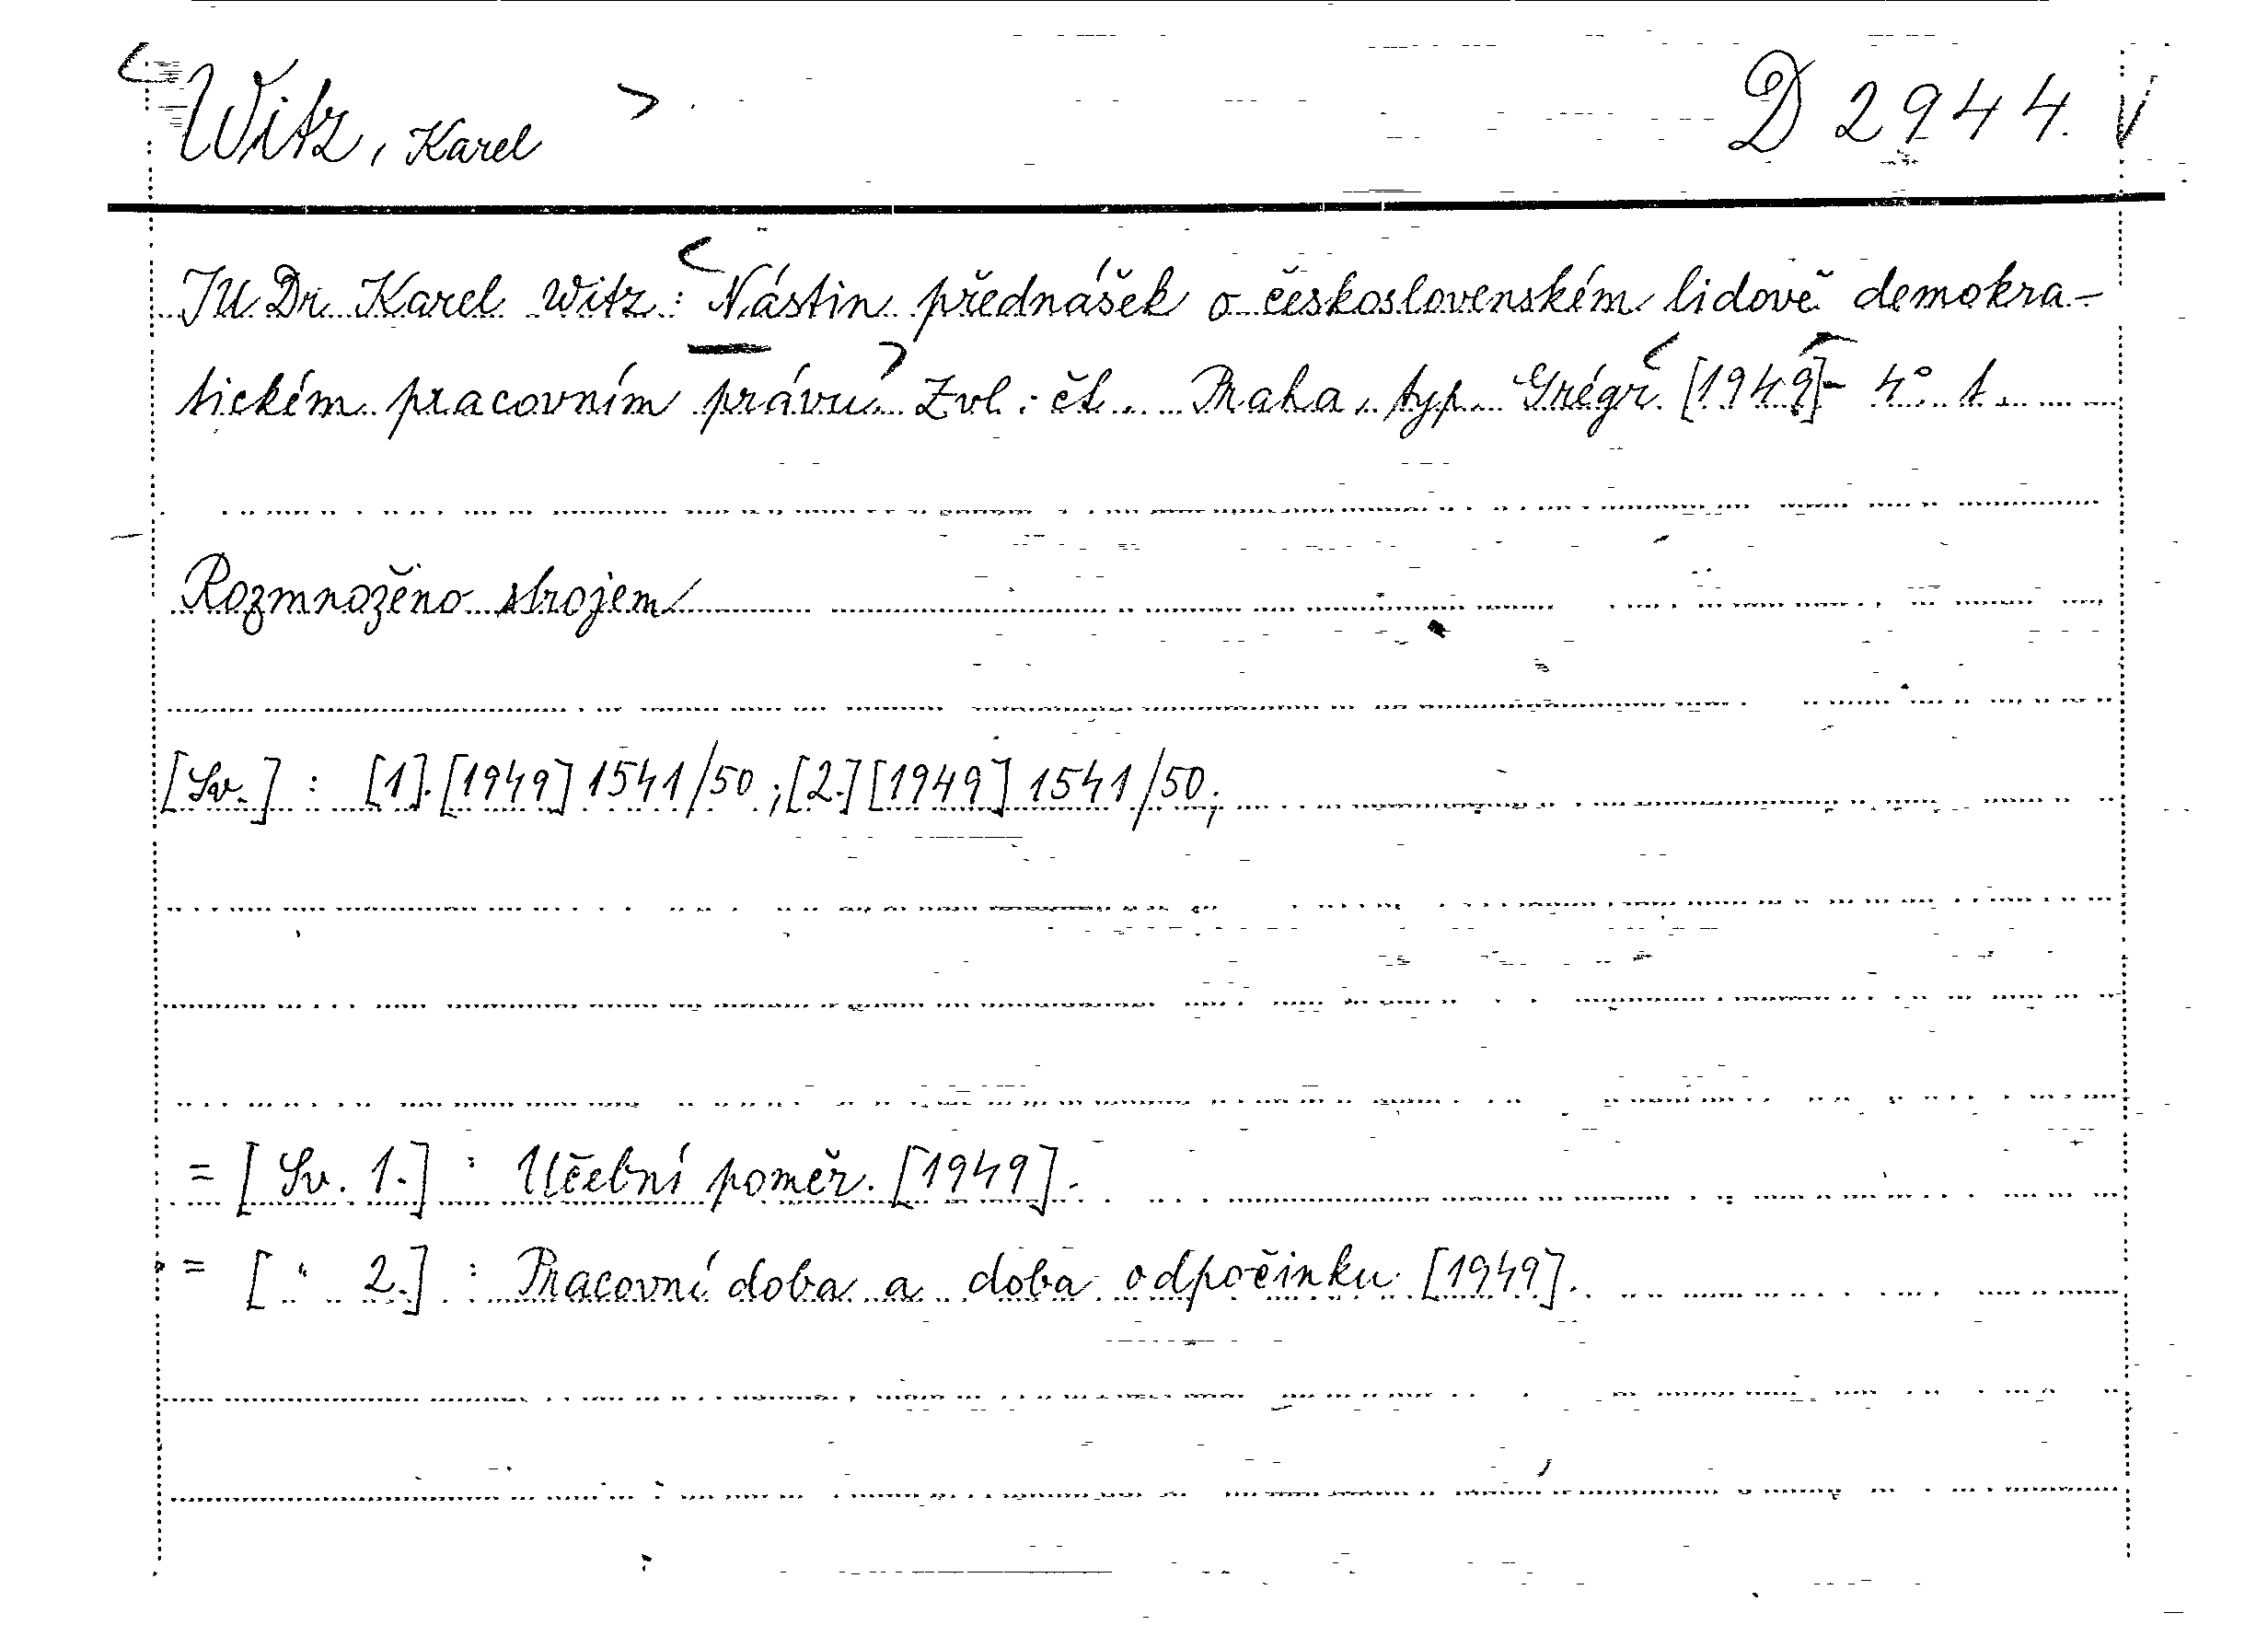 Witz, Karel D 2944.
JU Dr Karel Witz: Nástin přednášek o československém lidově demokra-
tickém pracovním právu. Zvl. čt. Praha, typ. Grégr [1949]- 4°. 1.
Rozmnoženo strojem
[Sv.] : [1]. [1949] 1541/50 ; [2.] [1949] 1541/50;
= [Sv. 1.] : Učební poměr. [1949].
= [" 2.] : Pracovní doba a doba odpočinku. [1949].